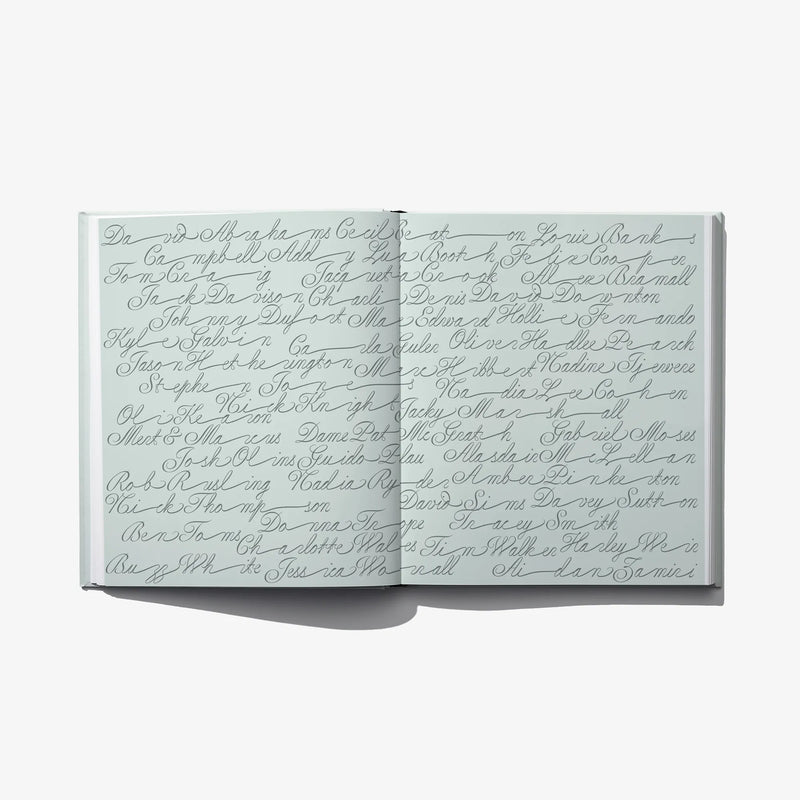 David Abrahams Cecil Beaton Louie Banks
Campbell Addy Lua Booth Felix Cooper
Tom Craig Jacqueta Crook Alex Bramall
Jack Davison Charlie Denis David Downton
Johnny Dufort Edward Hollie Fernando
Kyle Galvin Guler Oliver Hadlee Pearch
Jason Hetherington Marc Hibbert Nadine Ijewere
Stephen Jones Nadia Lee Cohen
Nick Knight Jacky Marshall
Oli Kearon
Mert & Marcus Dame Pat McGrath Gabriel Moses
Josh Olins Guido Palau Alasdair McLellan
Rob Rusling Nadia Ryder Amber Pinkerton
Nick Thompson David Sims Davey Sutton
Ben Toms Donna Trope Tracey Smith
Charlotte Wales Tim Walker Harley Weir
Buzz White Jessica Worrall Aidan Zamiri